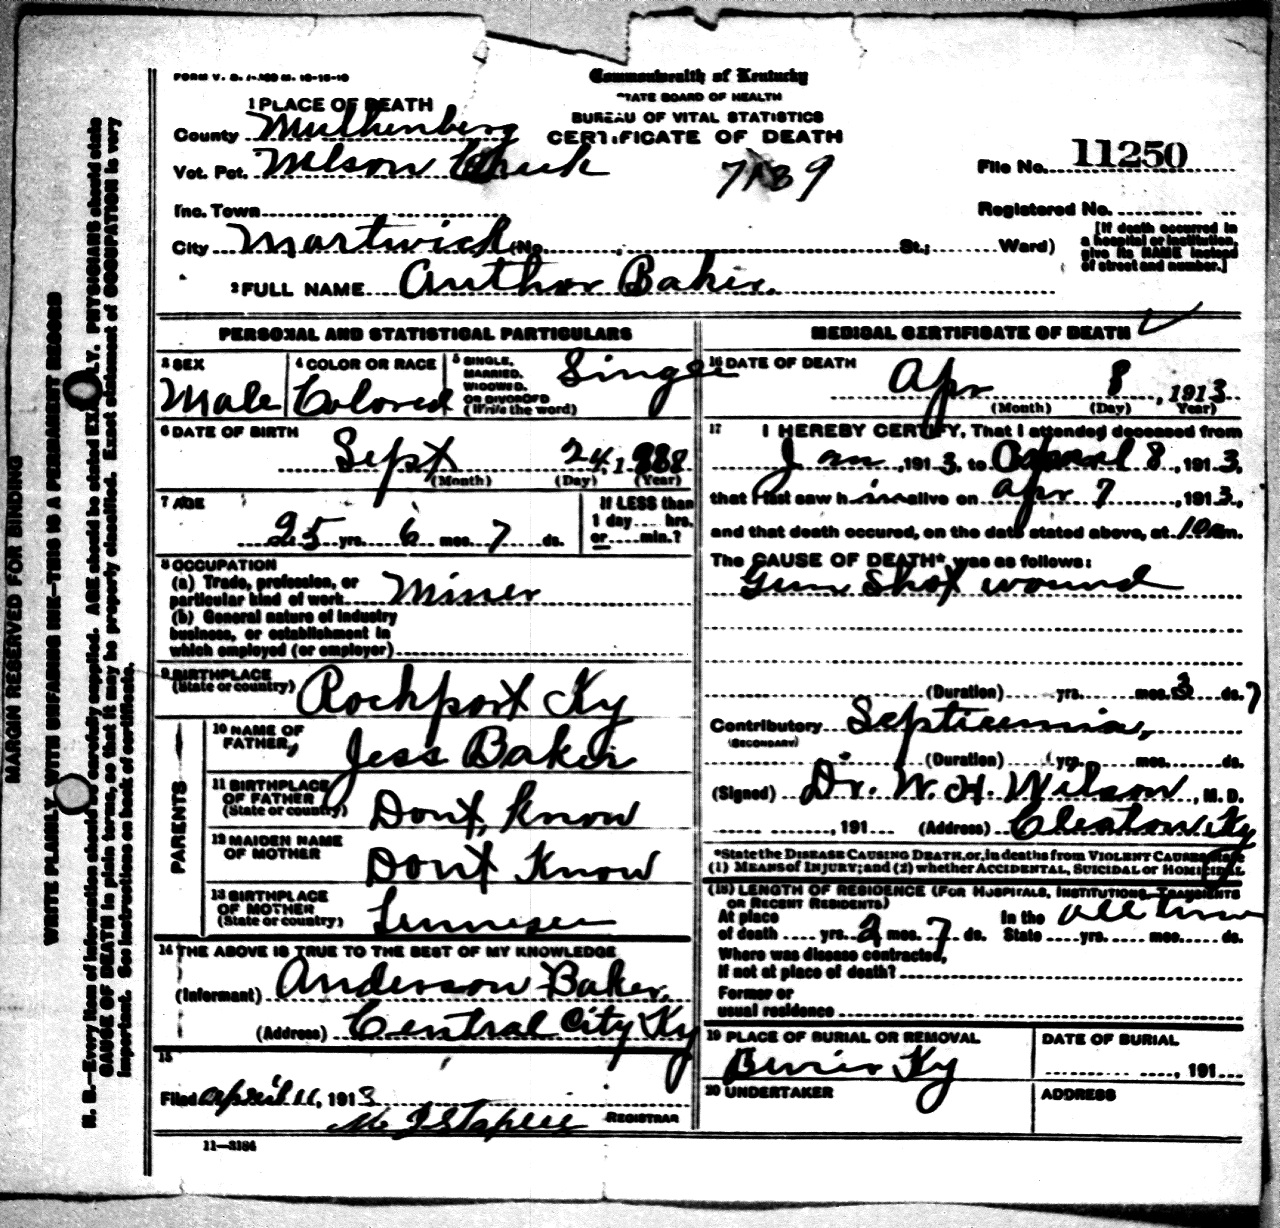 FORM V. S. 1-
Commonwealth of Kentucky
STATE BOARD OF HEALTH
BUREAU OF VITAL STATISTICS
CERTIFICATE OF DEATH
1 PLACE OF DEATH
County Muhlenberg
Vot. Pct. Nelson Creek
7189
File No. 11250
Inc. Town
Registered No.
City Martwick (No. , St.; Ward)
[If death occurred in a hospital or institution, give its NAME instead of street and number.]
2 FULL NAME Author Baker.
PERSONAL AND STATISTICAL PARTICULARS
3 SEX
Male
4 COLOR OR RACE
Colored
5 SINGLE, MARRIED, WIDOWED, OR DIVORCED (Write the word)
Single
6 DATE OF BIRTH
Sept 24, 1888
(Month) (Day) (Year)
7 AGE
25 yrs. 6 mos. 7 ds.
If LESS than 1 day hrs. or min.?
8 OCCUPATION
(a) Trade, profession, or particular kind of work Miner
(b) General nature of industry business, or establishment in which employed (or employer)
9 BIRTHPLACE (State or country) Rockport Ky
PARENTS
10 NAME OF FATHER, Jess Baker
11 BIRTHPLACE OF FATHER (State or country) Dont, Know
12 MAIDEN NAME OF MOTHER Dont Know
13 BIRTHPLACE OF MOTHER (State or country)
14 THE ABOVE IS TRUE TO THE BEST OF MY KNOWLEDGE
(Informant) Anderson Baker,
(Address) Central City Ky
15
Filed April 11, 1913
REGISTRAR
11—3184
MEDICAL CERTIFICATE OF DEATH
16 DATE OF DEATH
Apr 8, 1913
(Month) (Day) (Year)
17 I HEREBY CERTIFY, That I attended deceased from
Jan, 1913, to April 8, 1913,
that I last saw him alive on Apr 7, 1913,
and that death occured, on the date stated above, at m.
The CAUSE OF DEATH* was as follows:
Gun Shot wound
(Duration) yrs. mos. 3 ds. 7
Contributory Septicemia,
(SECONDARY)
(Duration) yrs. mos. ds.
(Signed) Dr. W. H. Wilson, M. D.
, 191 (Address) Cleaton Ky
*State the DISEASE CAUSING DEATH, or, in deaths from VIOLENT CAUSES state
(1) MEANS of INJURY; and (2) whether ACCIDENTAL, SUICIDAL or HOMICIDAL
(18) LENGTH OF RESIDENCE (FOR HOSPITALS, INSTITUTIONS, TRANSIENTS OR RECENT RESIDENTS)
At place of death yrs. 2 mos. 7 ds. In the State yrs. mos. ds. all time
Where was disease contracted, if not at place of death?
Former or usual residence
19 PLACE OF BURIAL OR REMOVAL
Ky
DATE OF BURIAL
, 191
20 UNDERTAKER
ADDRESS
MARGIN RESERVED FOR BINDING
WRITE PLAINLY, WITH UNFADING INK—THIS IS A PERMANENT RECORD
N. B.—Every item of information should be carefully supplied. AGE should be stated EXACTLY. PHYSICIANS should state
CAUSE OF DEATH in plain terms, so that it may be properly classified. Exact statement of OCCUPATION is very
important. See instructions on back of certificate.